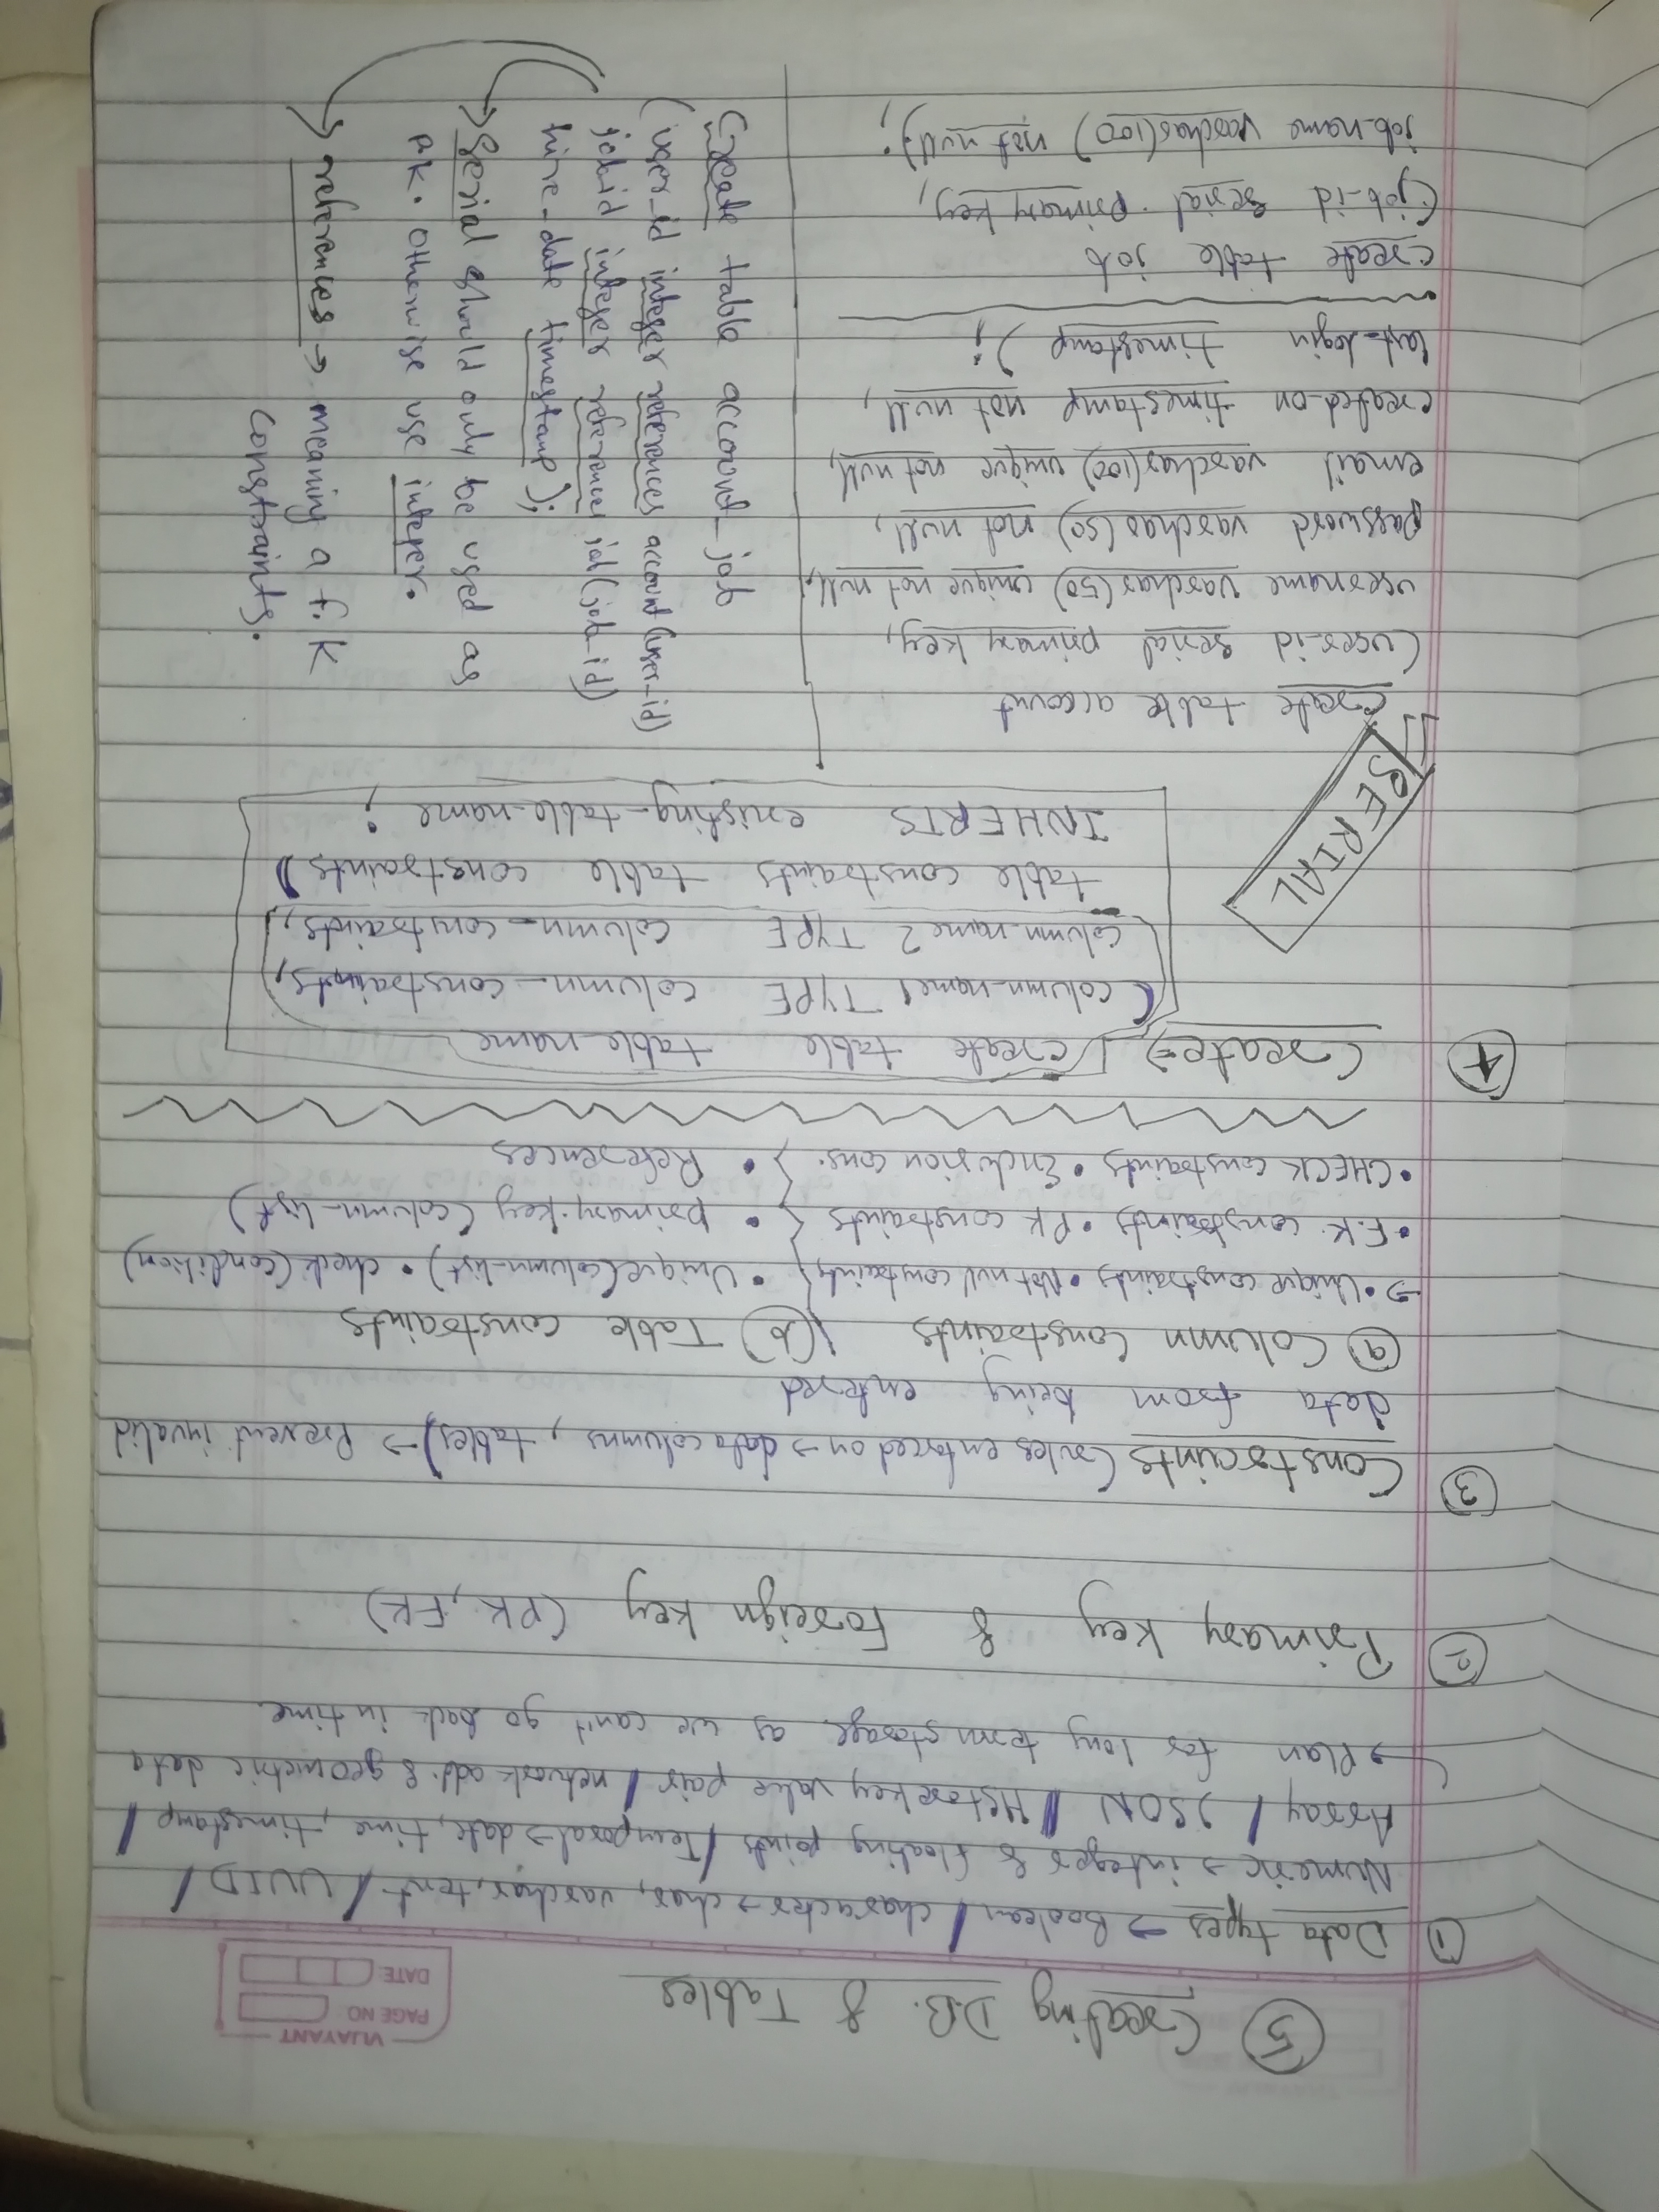 VIJAYANT
PAGE NO.
DATE:
⑤ Creating D.B. & Tables
① Data types → Boolean / character → char, varchar, text / UUID /
Numeric → integer & floating points / Temporal → date, time, timestamp /
Array / JSON / Hstore key value pair / network add. & geometric data
↳ Plan for long term storage as we can't go back in time.
② Primary key & Foreign key (PK, FK)
③ Constraints (rules enforced on → data columns, tables) → Prevent invalid
data from being entered
ⓐ Column Constraints ⓑ Table constraints
→ • Unique constraints • Not null constraints } • Unique(column-list) • check (condition)
• F.K. constraints • PK constraints } • primary-key (column-list)
• CHECK constraints • Exclusion cons. } • References
④ Create ⇒ Create table table_name
( column_name1 TYPE column_constraints,
column_name2 TYPE column_constraints,
table constraints table constraints)
INHERTS existing_table_name ;
SERIAL
Create table account
(user_id serial primary key,
username varchar(50) unique not null,
password varchar(50) not null,
email varchar(100) unique not null,
created_on timestamp not null,
last_login timestamp );
create table job
(job_id serial primary key,
job_name varchar(100) not null);
Create table account_job
(user_id integer references account(user_id)
job_id integer references job(job_id)
hire_date timestamp);
→ Serial should only be used as
PK. otherwise use integer.
→ references → meaning a f.K
constraints.